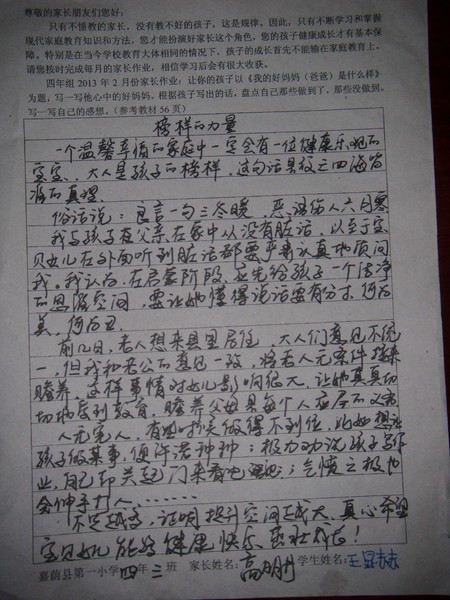 尊敬的家长朋友们您好：
只有不懂教的家长，没有教不好的孩子，这是规律。因此，只有不断学习和掌握
现代家庭教育知识和方法，您才能扮演好家长这个角色，您的孩子健康成长才有基本保
障。特别是在当今学校教育大体相同的情况下，孩子的成长首先不能输在家庭教育上。
请您按时完成每月的家长作业，相信学习后会有很大收获。
四年组 2013 年 2 月份家长作业：让你的孩子以《我的好妈妈（爸爸）是什么样》
为题，写一写他心中的好妈妈。根据孩子写出的话，盘点自己那些做到了，那些没做到，
写一写自己的感想。（参考教材 56 页）
榜样的力量
一个温馨幸福的家庭中一定会有一位健康乐观的
宝宝、大人是孩子的榜样，这句话是放之四海皆
准的真理
俗话说：良言一句三冬暖，恶语伤人六月寒
我与孩子在父亲在家中从没有脏话，以至于宝
贝女儿在外面听到脏话都要严肃认真地质问
我。我认为，在启蒙阶段，应先给孩子一个洁净
的思源空间，要让她懂得说话要有分寸，何为
美，何为丑.
前几日，老人想来县里居住，大人们意见不统
一，但我和老公的意见一致，将老人无条件接来
赡养，这样事情对女儿影响很大，让她真真切
切地受到教育，赡养父母是每个人应尽的义务
人无完人，有些时候做得不到位，比如想让
孩子做某事，便许诺种种；极力劝说孩子写作
业，自己却关起门来看电视；气愤之极也
会伸手打人. ……
不足越多，证明提升空间越大，真心希望
宝贝女儿能够健康、快乐、茁壮成长！
嘉荫县第一小学四年三班 家长姓名：高